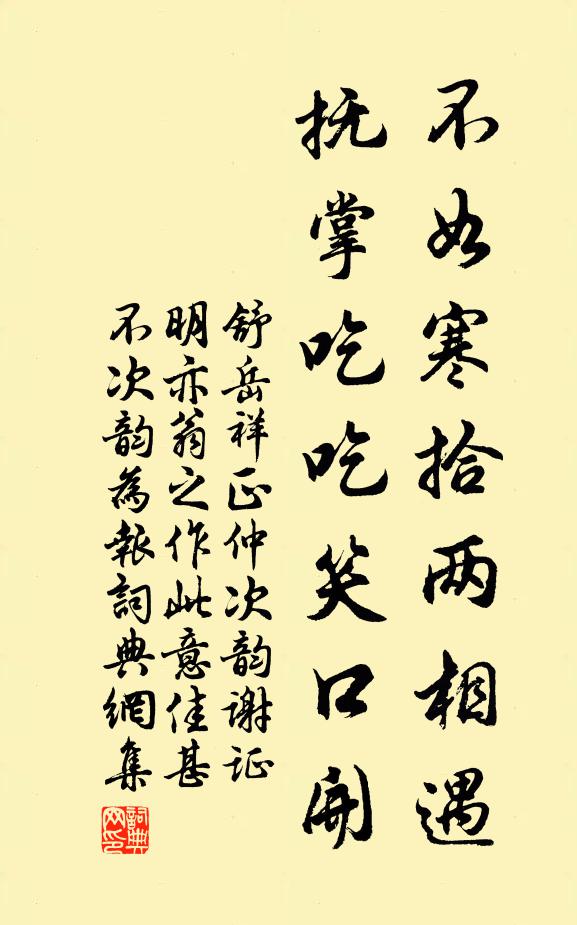 不如寒拾两相遇
抚掌吃吃笑口開
舒岳祥正仲次韵谢证
明亦翁之作此意佳甚
不次韵為報詞典網集
詞典网印